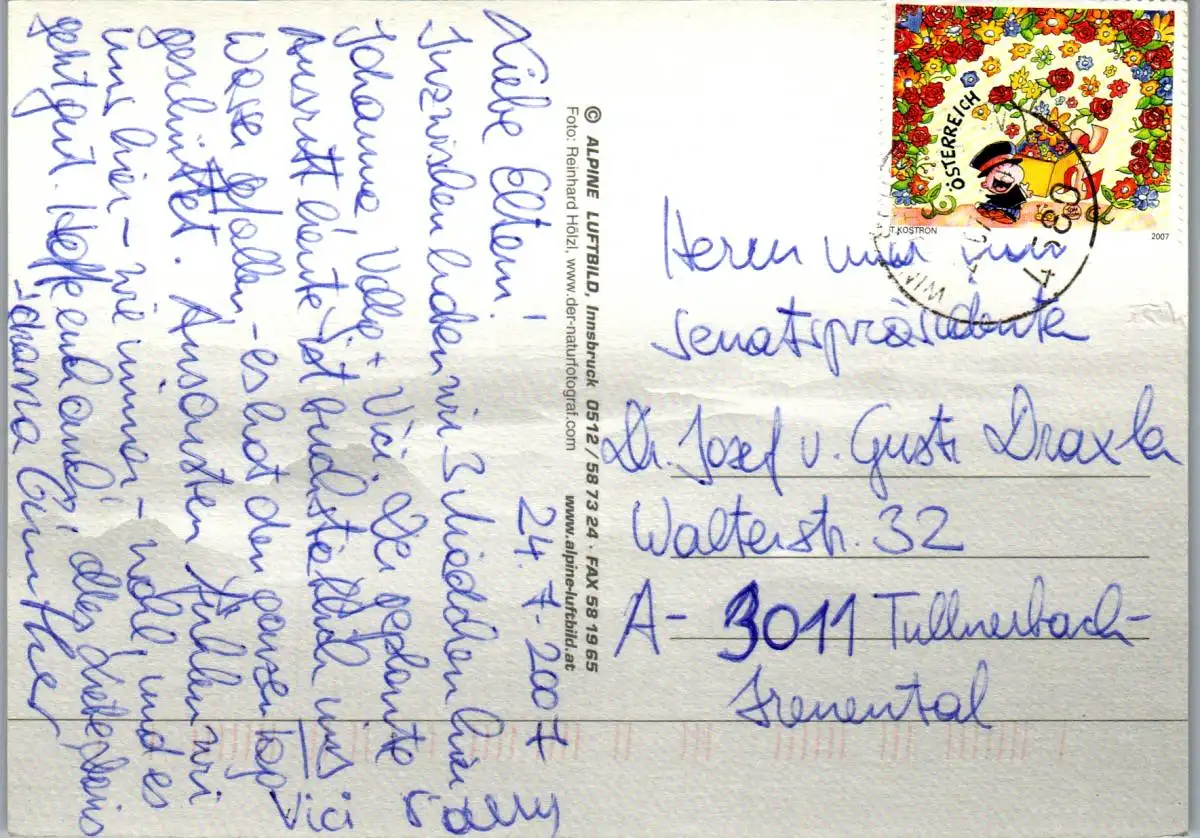 Liebe Eltern!
24.7.2007
Inzwischen haben wir 3 Mädchen hier
Johanna, Valli + Vici. Der geplante
Ausritt heute ist buchstäblich ins
Wasser gefallen - es hat den ganzen Tag
geschüttet. Ansonsten fühlen wir
uns hier - wie immer - wohl und es
geht gut. Hoffentlich auch! Alles Liebe
Johanna Günther
Vici
© ALPINE LUFTBILD, Innsbruck 0512 / 58 73 24 · FAX 58 19 65
Foto: Reinhard Hölzl, www.der-naturfotograf.com www.alpine-luftbild.at
ÖSTERREICH
T. KOSTRON 2007
4580
Herrn und Frau
Senatspräsidenten
Dr. Josef u. Gusti Draxler
Walterstr. 32
A- 3011 Tullnerbach-
Irenental